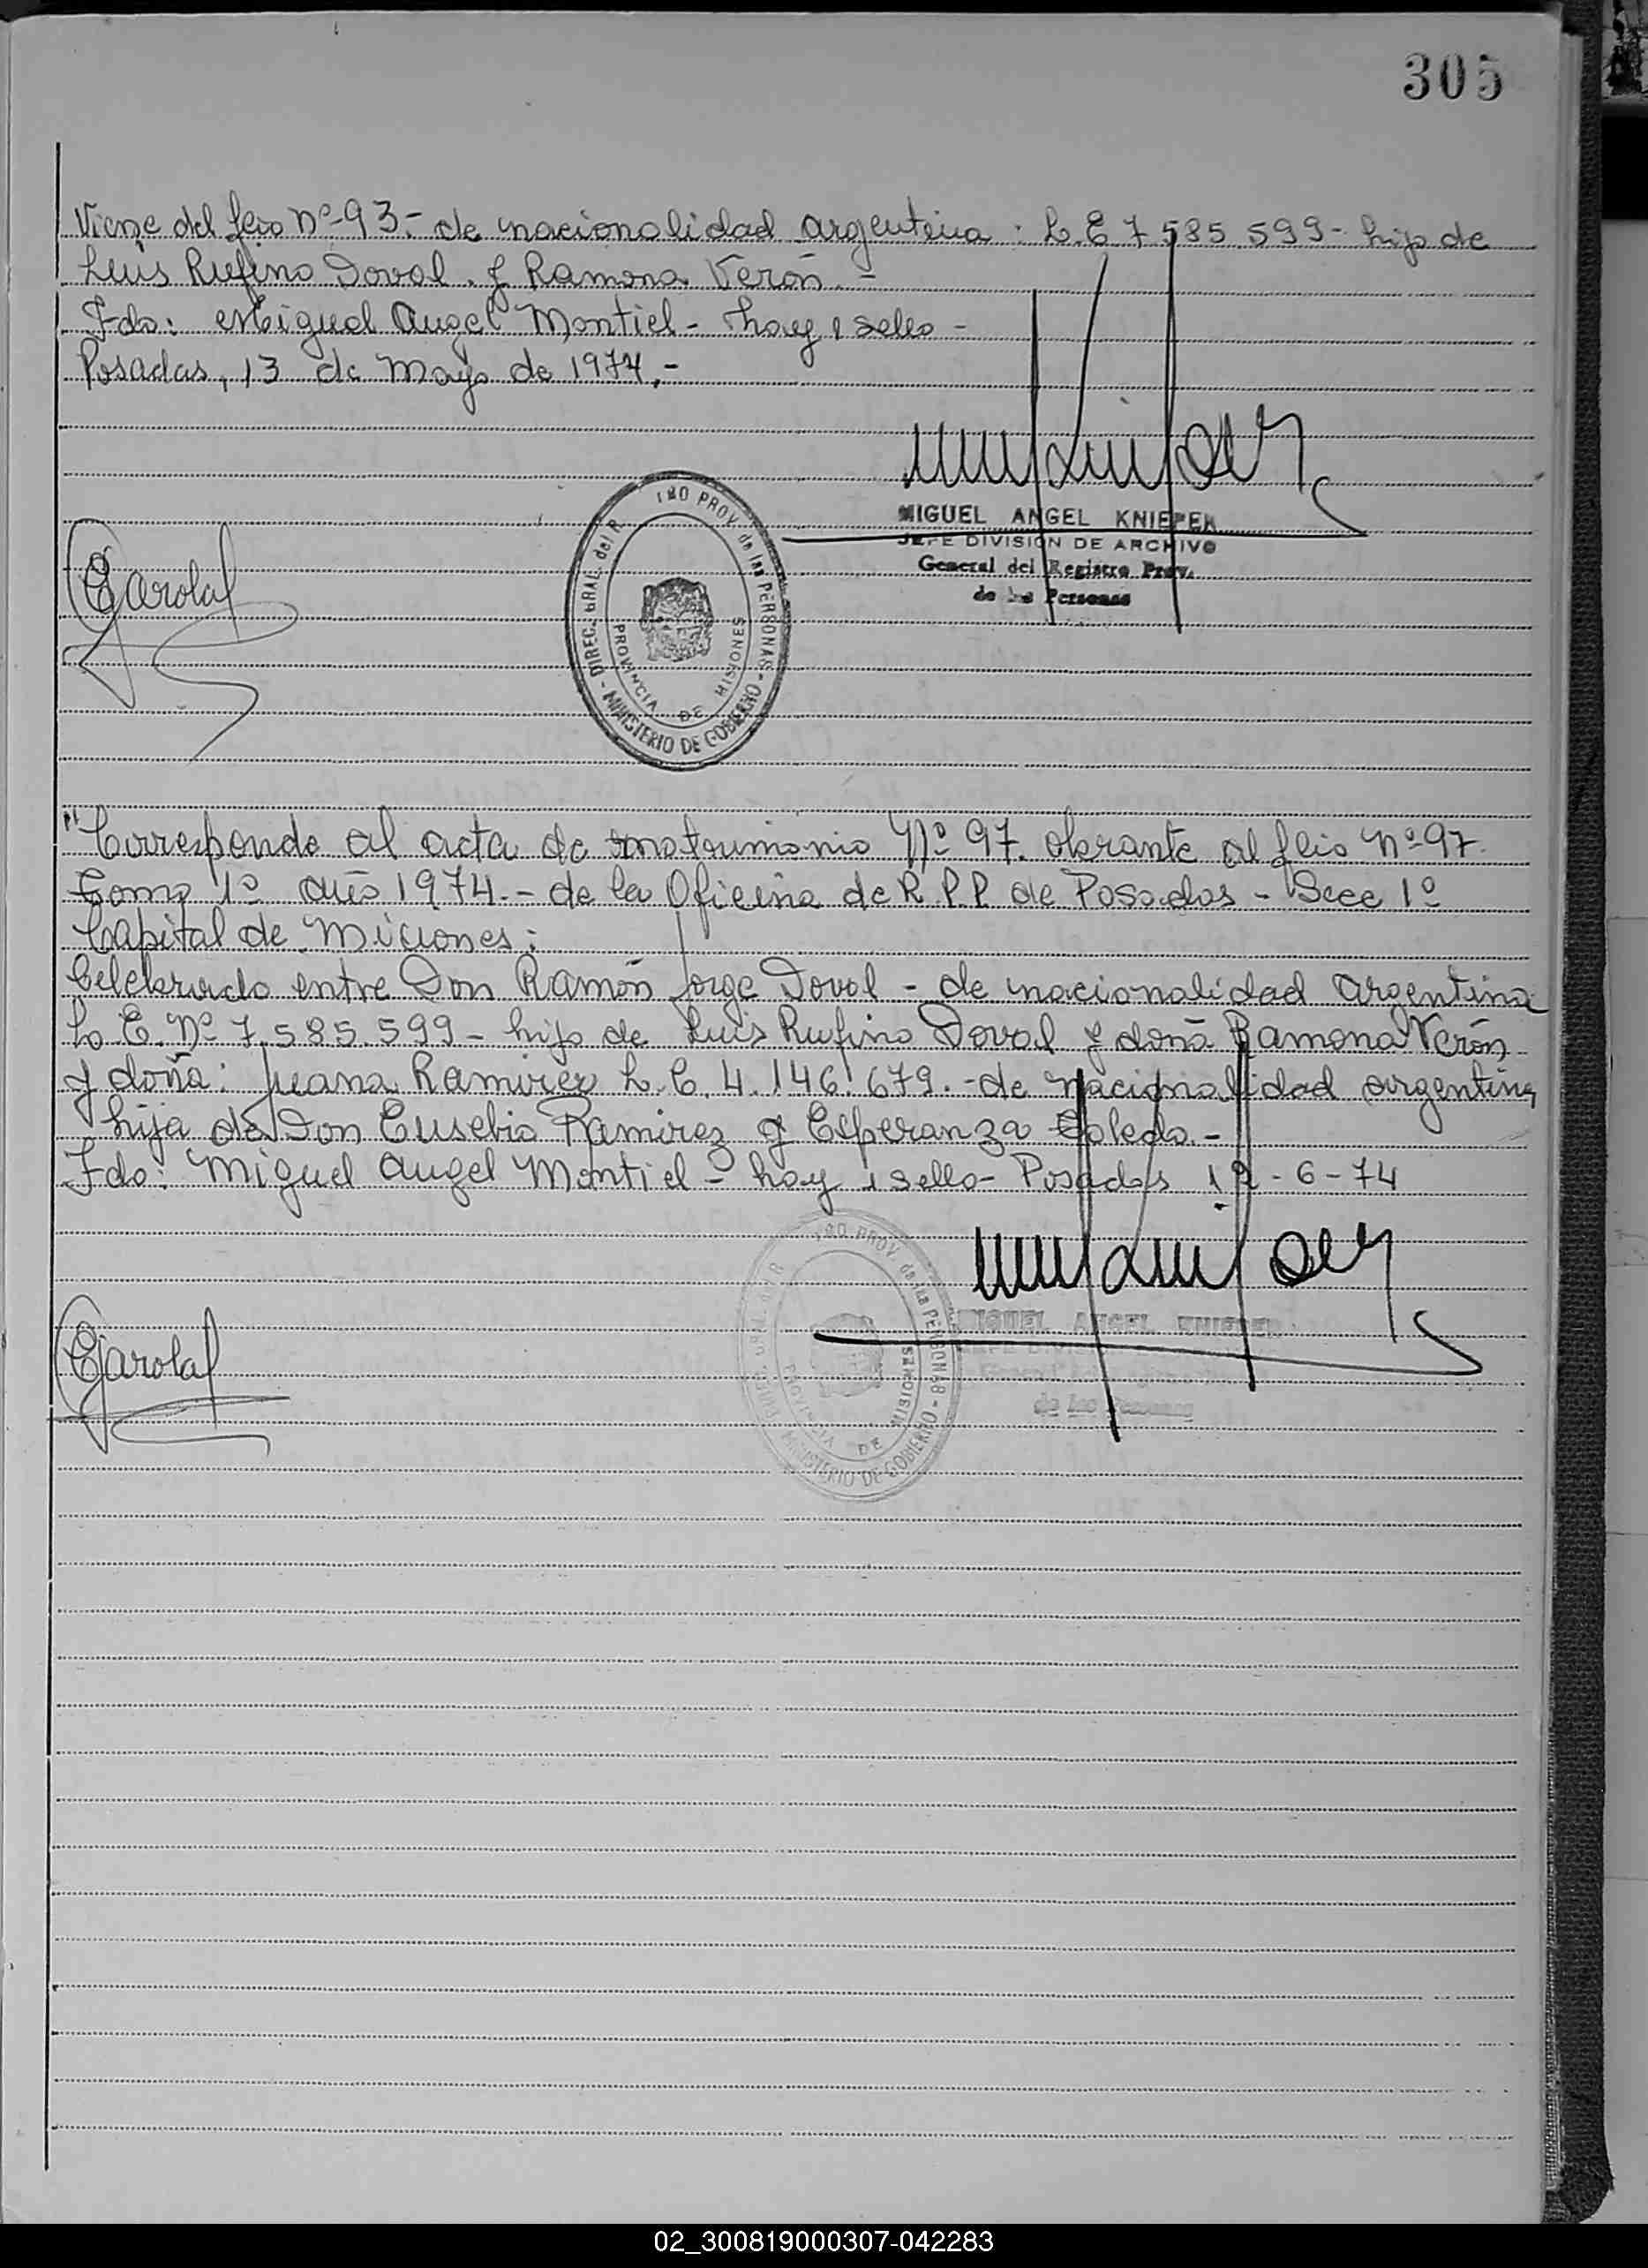 305
Viene del folio Nº 93.- de nacionalidad argentina: L.E 7.585.599- hijo de
Luis Rufino Doval y Ramona Verón.-
Fdo: Miguel Angel Montiel - hay 1 sello -
Posadas, 13 de Mayo de 1974.-
MIGUEL ANGEL KNIEPER
JEFE DIVISION DE ARCHIVO
General del Registro Prov.
de las Personas
DIREC. GRAL. del R PROV. de las PERSONAS - MINISTERIO DE GOBIERNO -
PROVINCIA DE MISIONES
"Corresponde al acta de matrimonio Nº 97. obrante al flio Nº 97.
Tomo 1º año 1974.- de la Oficina de R.P.P. de Posadas - Secc 1º
Capital de Miciones:
Celebrado entre Don Ramón Jorge Doval - de nacionalidad argentina
L.E. Nº 7.585.599- hijo de Luis Rufino Doval y doña Ramona Verón
y doña: Juana Ramirez L.C. 4.146.679.- de nacionalidad argentina
hija de Don Eusebio Ramirez y Esperanza Toledo.-
Fdo: Miguel Angel Montiel - hay 1 sello - Posadas 12-6-74
MIGUEL ANGEL KNIEPER
de las Personas
PROV. de las PERSONAS - MINISTERIO DE GOBIERNO
PROVINCIA DE MISIONES
02_300819000307-042283